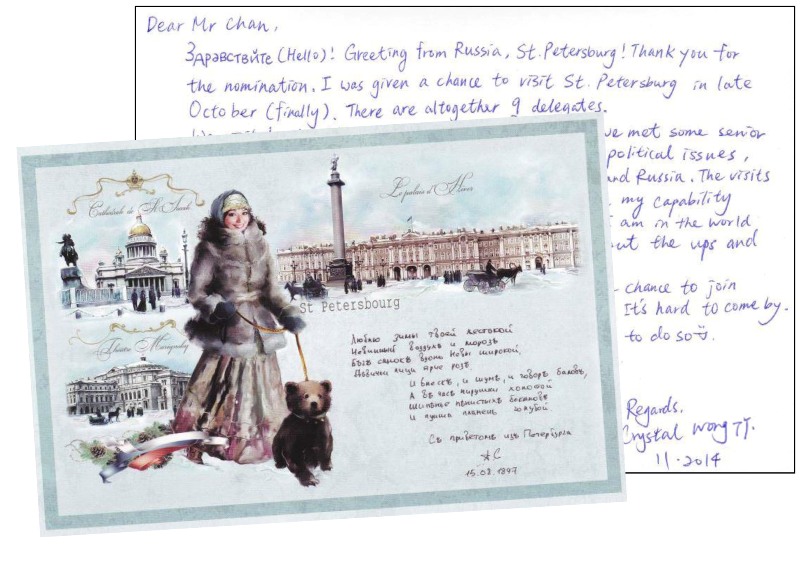 Dear Mr Chan,
Здравствйте (Hello)! Greeting from Russia, St.Petersburg! Thank you for
the nomination. I was given a chance to visit St. Petersburg in late
October (finally). There are altogether 9 delegates.
we met some senior
political issues,
and Russia. The visits
my capability
I am in the world
out the ups and
chance to join
It's hard to come by.
to do so
Regards.
Crystal Wong TY.
11.2014
Cathédrale de St Isaak
Le palais d'Hiver
St Petersbourg
Théâtre Mariynsky
Люблю зимы твоей жестокой
Недвижный воздухъ и морозъ
Бѣгъ санокъ вдоль Невы широкой,
Дѣвичьи лица ярче розъ,
И блескъ, и шумъ, и говоръ баловъ,
А въ часъ пирушки холостой
Шипенье пенистыхъ бокаловъ
И пунша пламень голубой
Съ привѣтомъ изъ Петербурга
АС